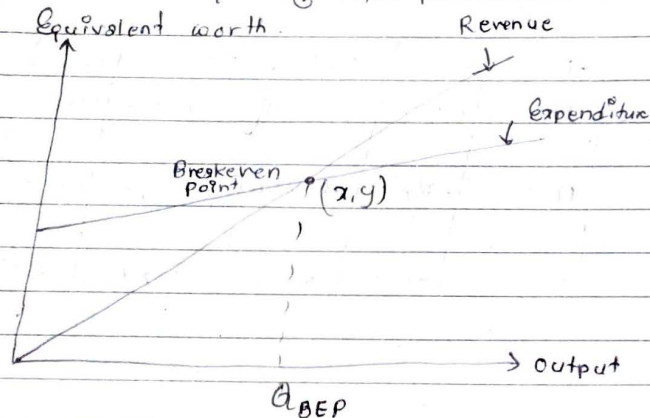 Equivalent worth
Revenue
Expenditure
Breakeven
point
(x,y)
Output
Q BEP